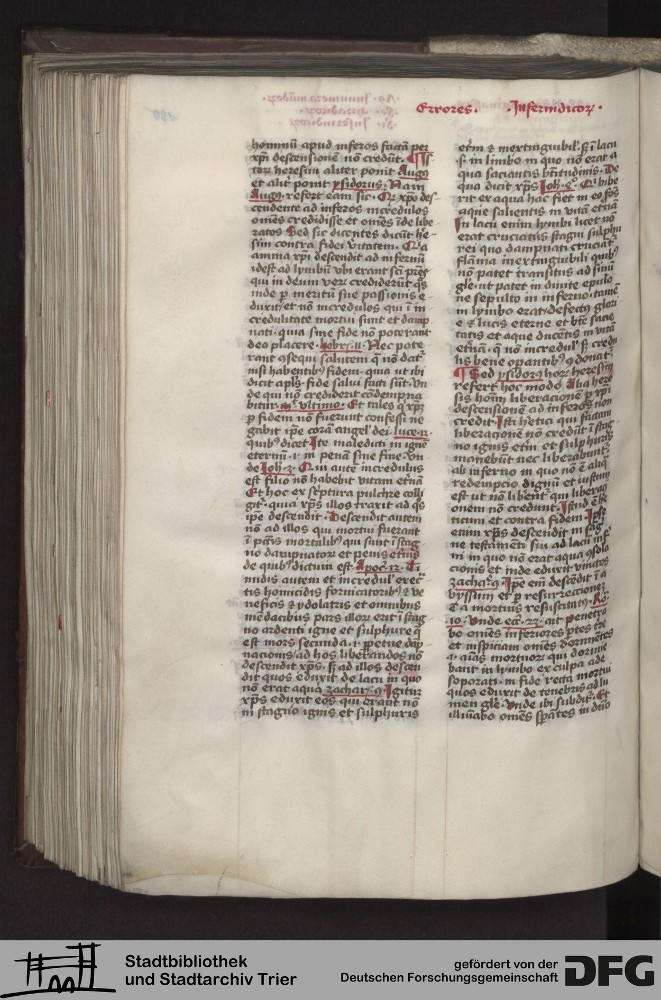 Errores. Inferindicoꝝ.
hominū apud inferos factā per
xp̄i descensionē nō credūt. Is
toꝝ heresim aliter ponit Augꝯ
et alit̾ ponit ysidorus. Nam
Augꝯ refert eam sic. xp̄o des-
cendente ad inferos incredulos
om̄es credidisse et om̄es īde libe
ratos Sed sic dicentes dicūt he-
sim contra fidei v̾itatem. Q̄ꝛ
anima xp̄i descendit ad infernū
idest ad lymbū vbi erant scī pr̄es
qui in deum veꝝ crediderūt q̄s
inde ꝑ meritū sue passionis e-
duxit/ et nō incredulos qui ī in-
credulitate mortui sunt et damp
nati. quia sine fide nō poterant
deo placere. hebre. 11. Nec pote
rant ꝯsequi salutem q̄ nō dat᷑
nisi habentibꝯ fidem. quia ut ibi
dicit apl̄s. fide salui facti sūt. vn
de qui nō crediderit cōdempna
bitur. m̄ᵣ vltimo. Et tales
fidem nō fuerunt confessi ne
gabit ip̄e corā angel̾ dei luce. 12.
quibꝯ dicet Ite maledicti in igne
eternū. ī penā sine fine. vn
de Joh. 3. Qui autē incredulus
est filio nō habebit vitam et̾nā
Et hoc ex sc̾ptura pulchre colli
git᷑. quia xp̄s illos traxit ad q̄s
ip̄e descendit. Descendit autem
nō ad illos qui mortui fuerant
ī pctīs mortalibꝯ qui sunt ī stag
no dampnatoꝝ et penis et̾nis
de quibꝯ dictum est. Apoc. Ti
midis autem et incredul̾ execr̾
tis homicidis fornicatoribꝯ ⁊ ve
neficis ⁊ ydolatris et omnibus
mēdacibus pars illoꝝ erit ī stag
no ardenti igne et sulphure q̄
est mors secunda. ꝑpetue dāp
nacionis ad hos liberandos nō
descendit xp̄s. ad illos descen
dit quos eduxit de lacu in quo
nō erat aqua zachar. 9. Igitur
xp̄s eduxit eos qui erant nō
in stagno ignis et sulphuris
et̾m ⁊ inextinguibil̾ ī lacu
in limbo in quo nō erat a
qua saciantis bt̄itudinis. De
qua dicit xp̄s Joh. bibe
rit ex aqua hac fiet in eo fōs
aque salientis in vitā et̾nā
In lacu enim lymbi licet nō
erat cruciatus stagni sulphu
rei quo dampnati cruciāt᷑
flāma inextinguibili quibꝯ
nō patet transitus ad sinū
gl̄e. ut patet in diuite epulo
ne sepulto in inferno. tamē
in lymbo erat defectꝯ glori
e ⁊ lucis eterne et bt̄e sacie
tatis et aque ducētis in vitā
et̾nā. q̄ nō incredul̾ credu
lis bene opantibꝯ ꝯdonat᷑.
Sed ysidorꝯ hoꝝ heresim
refert hoc modo Alia here
sis hoīm liberacionē ꝑ xp̄i
descensionē ad inferos non
credit. Isti h̾etici qui factam
liberacionē nō credūt ī stag
no ignis et̾ni et sulphuris
manebūt nec liberabūt᷑.
ab inferno in quo nō ē aliq̄
redempcio dignū et iustum
est ut nō libent᷑ qui liberaci
onem nō credunt. Istud ē h̾e
ticum et contra fidem. Ip̄e
enim xp̄s descendit in
ne testamēti sui ad lacū īf̾
ni in quo nō erat aqua ꝯsola
cionis et inde eduxit vinctos
zachar. 9. Ip̄e em̄ descēdit ī a
byssum et ꝑ resurrectionē
a mortuis resuscitatꝯ. Ro.
10. vnde ecc. 24. ait penetra
bo om̄es inferiores ꝑtes tr̄e
et inspiciam om̄es dormiētes
aīas mortuoꝝ qui dormie
bant in lymbo ex culpa ade
soporati. in fide recta mortui
quos eduxit de tenebris ad lu
men gl̄e. vnde ibi subdit᷑. Et
illuīabo om̄es sp̄ātes in dn̄o
Stadtbibliothek
und Stadtarchiv Trier
gefördert von der
Deutschen Forschungsgemeinschaft
DFG